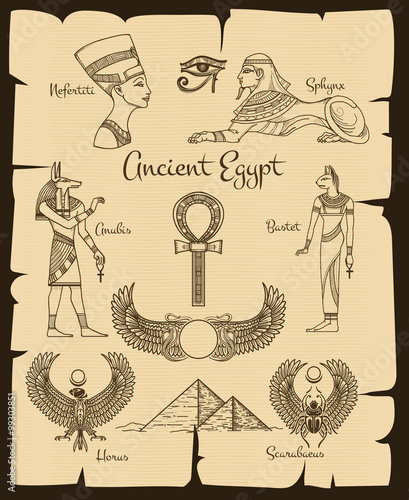 Nefertiti
Sphynx
Ancient Egypt
Anubis
Bastet
Horus
Scarabaeus
© adobe stock | 99203851